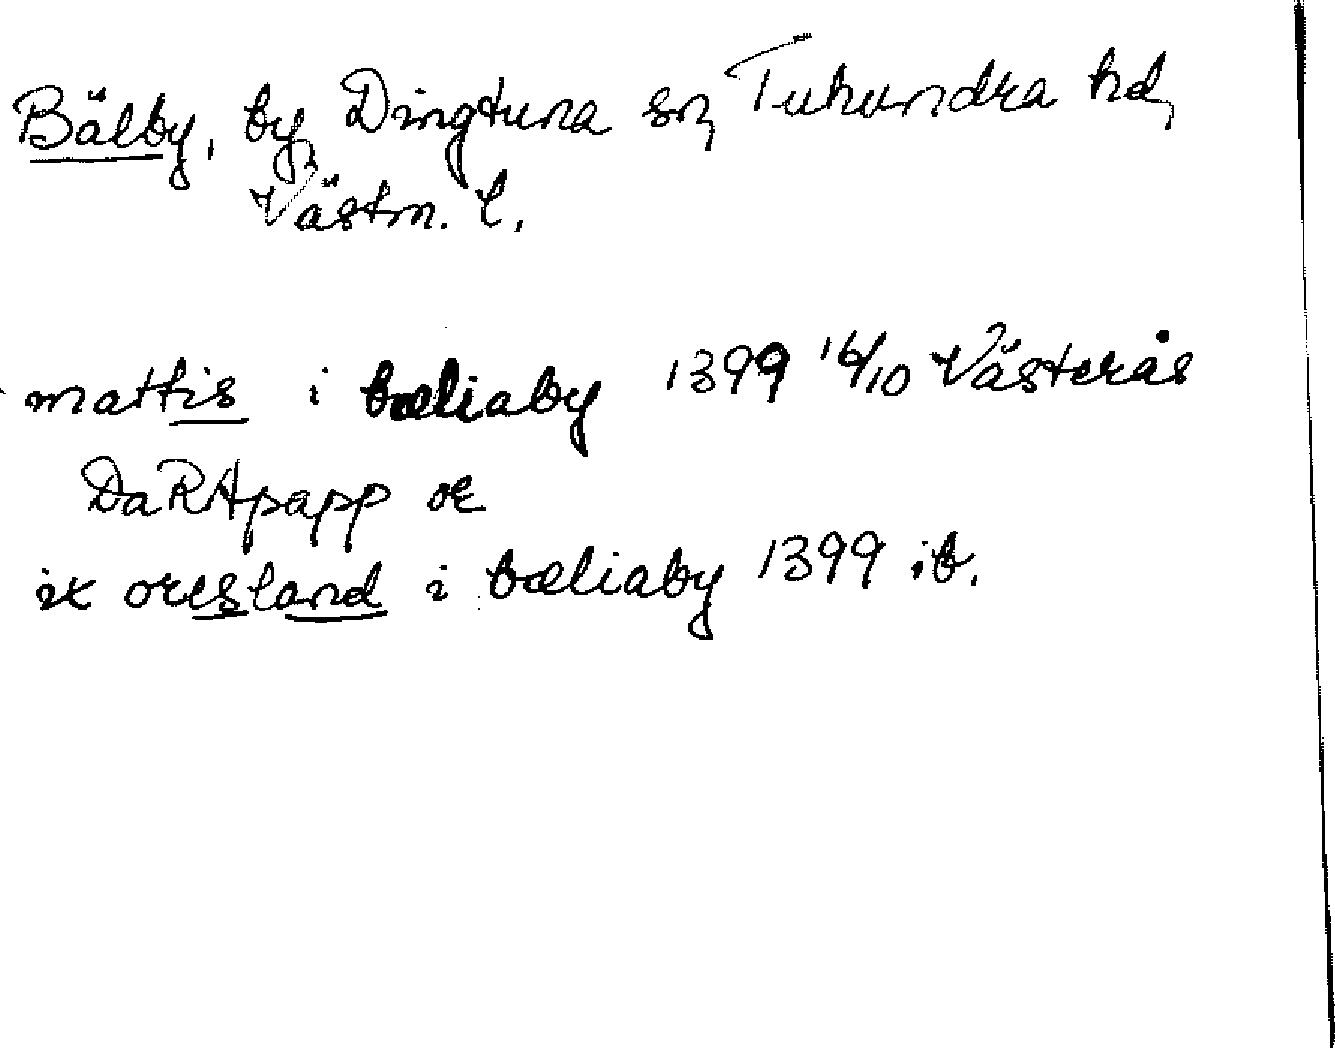 Bälby, by, Dingtuna sn, Tuhundra hd,
Västm. l.
mattis i bæliaby 1399 16/10 Västerås
DaRApapp or
ix oresland i bæliaby 1399 ib.